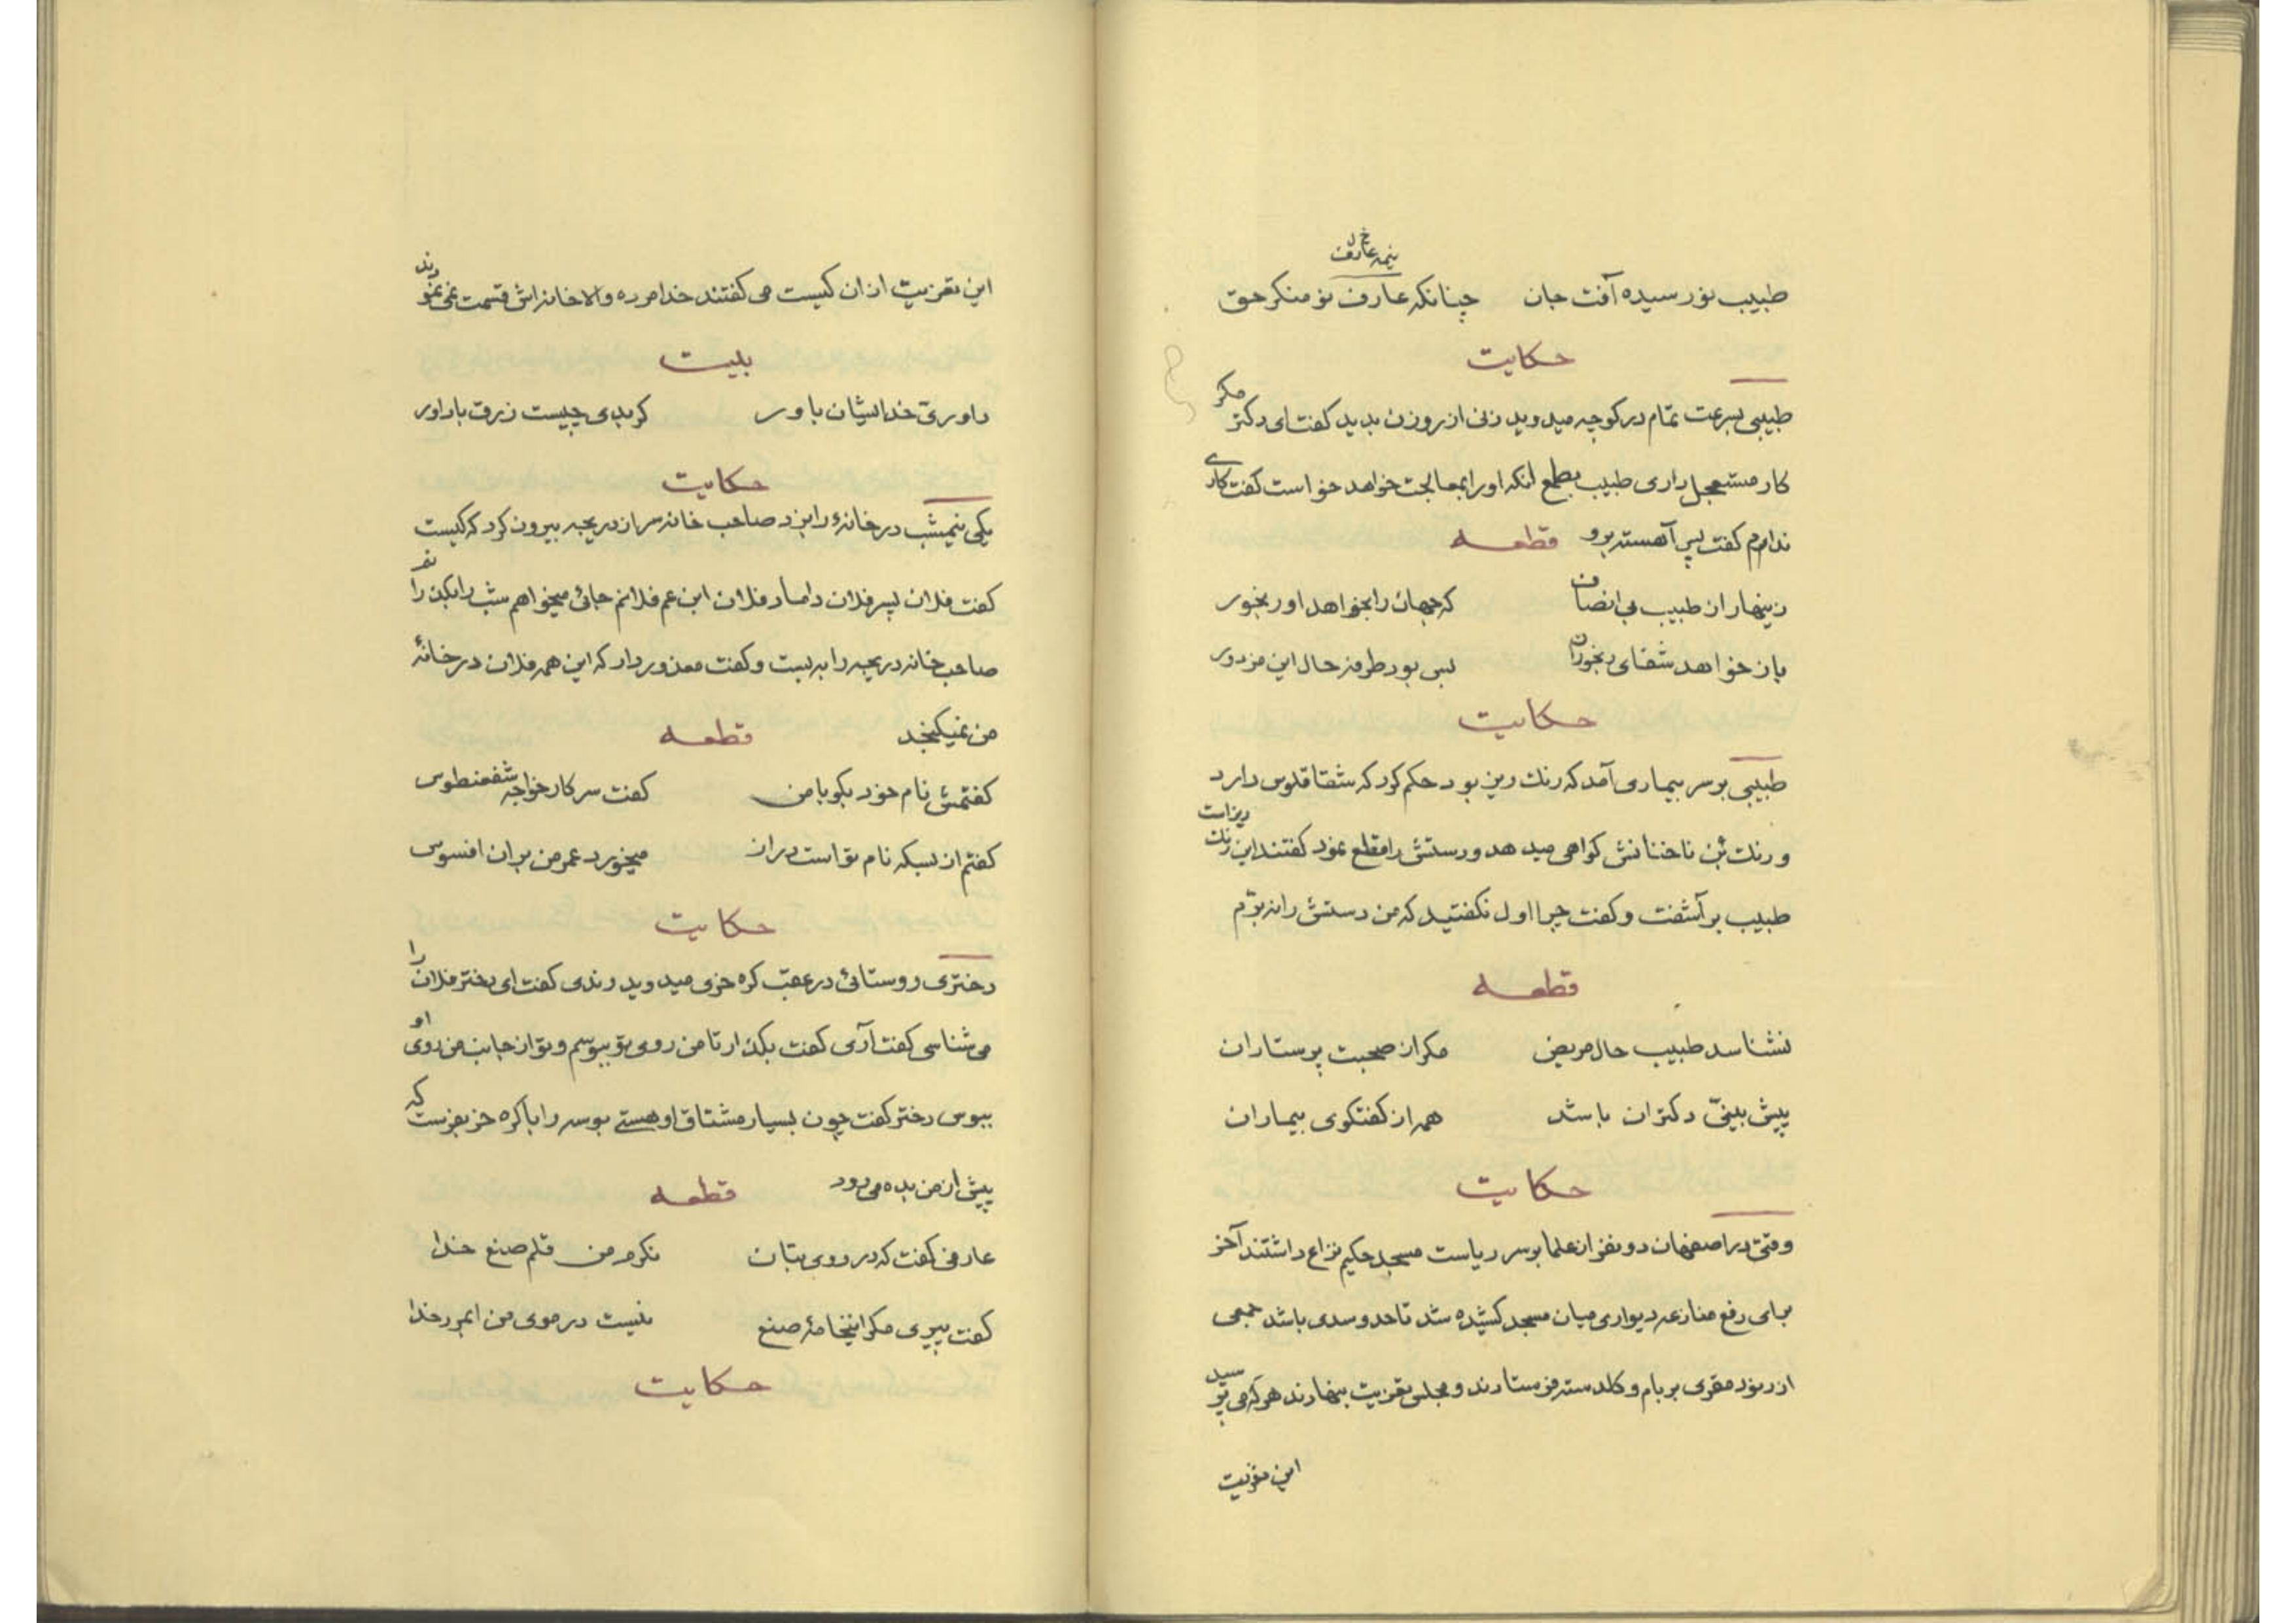 نیمه عارف خ ل
طبیب نورسیده آفت جان چنانکه عارف نو منکر حق
حکایت
طبیبی بسرعت تمام در کوچه میدوید زنی از روزن بدید گفت ای دکتر مگر
کار مستعجل داری طبیب بطمع آنکه او را بمعالجت خواهد خواست گفت کاری
ندارم گفت پس آهسته برو قطعه
زینهار از طبیب بی انصاف که جهان را بخواهد او رنجور
باز خواهد شفای رنجوران بس بود طرفه حال این مزدور
حکایت
طبیبی بر سر بیماری آمد که رنگ ریز بود حکم کرد که شقاقلوس دارد
و رنگ بن ناخنانش گواهی میدهد و دستش را قطع نمود گفتند این رنگ ریز است
طبیب بر آشفت و گفت چرا اول نگفتید که من دستش را نه برّم
قطعه
نشناسد طبیب حال مریض مگر از صحبت پرستاران
پیش بینیّ دکتران باشد همه از گفتگوی بیماران
حکایت
وقتی در اصفهان دو نفر از علما بر سر ریاست مسجد حکیم نزاع داشتند آخر
برای رفع منازعه دیواری میان مسجد کشیده شد تا حد و سدی باشد جمعی
از رنود مقری بر بام و گلدسته فرستادند و مجلس تعزیت بنهادند هر که می پرسید
این تعزیت
این تعزیت از ان کیست می گفتند خدا مرده والا خانه اش قسمت نمی نمودند
بیت
داوریّ خدا بشان باور گر بدی چیست زرق باد آور
حکایت
یکی نیمشب در خانهٔ را بزد صاحب خانه سر از دریچه بیرون کرد که کیست
گفت فلان پسر فلان داماد فلان ابن عم فلانم جائی میخواهم شب را یکنفر را
صاحب خانه دریچه را به بست و گفت معذور دار که این همه فلان در خانهٔ
من نمیگنجد قطعه
گفتمش نام خود بگو با من گفت سرکار خواجه شفعنطوس
گفتم از بسکه نام تو است دراز میخورد عمر من بر ان افسوس
حکایت
دختری روستائی در عقب کره خری میدوید رندی گفت ای دختر فلان را
می شناسی گفت آری گفت بگذار تا من روی تو ببوسم و تو از جانب من روی او
ببوس دختر گفت چون بسیار مشتاق او هستی بوسه را با کره خر بفرست که
پیش از من بده می رود قطعه
عارفی گفت که در روی بتان نگرم من قلم صنع خدا
گفت پیری مگر اینخامهٔ صنع نیست در موی من ایمرد خدا
حکایت